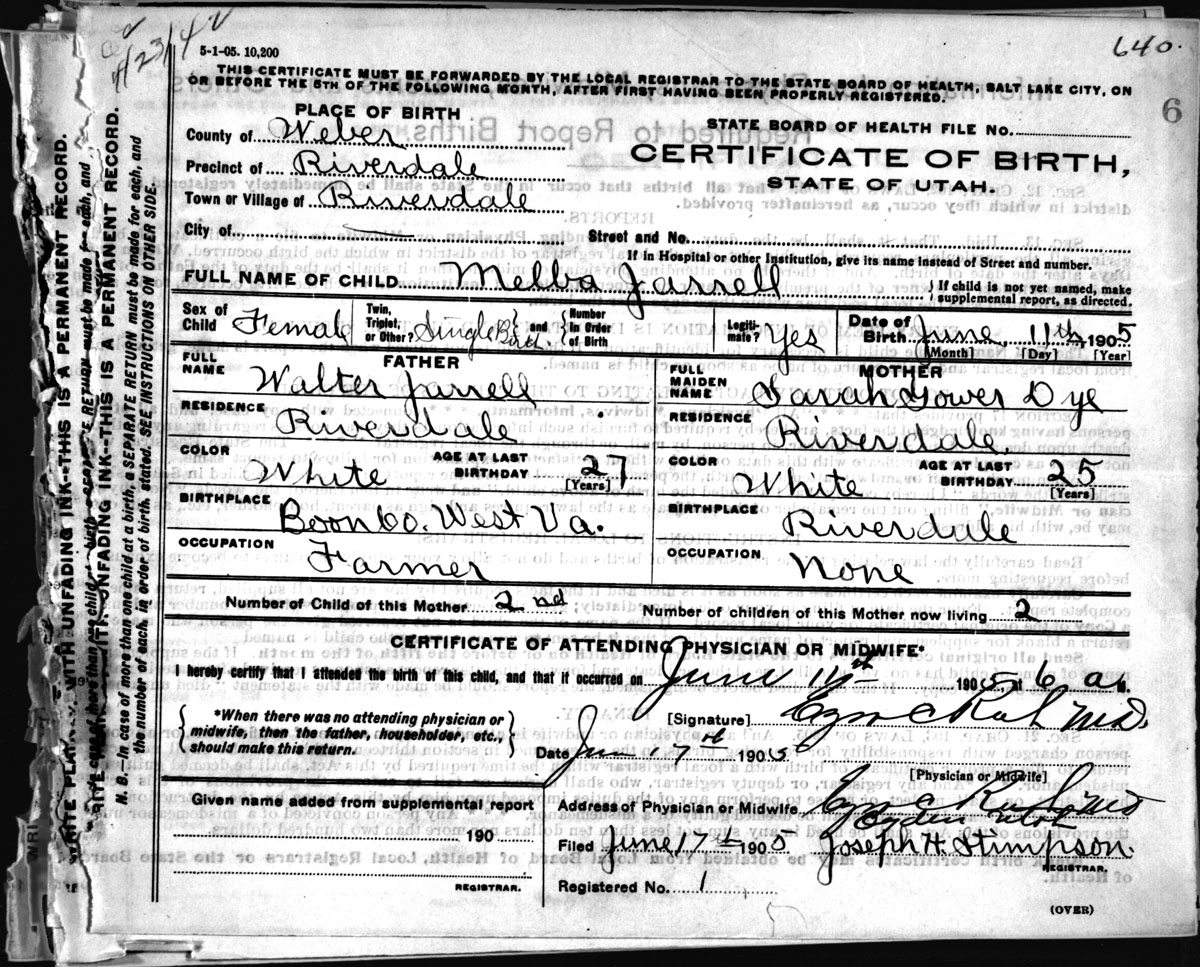 4/23/42
640.
5-1-05. 10,200
THIS CERTIFICATE MUST BE FORWARDED BY THE LOCAL REGISTRAR TO THE STATE BOARD OF HEALTH, SALT LAKE CITY, ON
OR BEFORE THE 5TH OF THE FOLLOWING MONTH, AFTER FIRST HAVING BEEN PROPERLY REGISTERED.
6
PLACE OF BIRTH
County of Weber
Precinct of Riverdale
Town or Village of Riverdale
City of
STATE BOARD OF HEALTH FILE NO.
CERTIFICATE OF BIRTH,
STATE OF UTAH.
Street and No.
If in Hospital or other Institution, give its name instead of Street and number.
FULL NAME OF CHILD Melba Jarrell
If child is not yet named, make
supplemental report, as directed.
Sex of Child Female
Twin, Triplet, or Other, Single Birth and Number in Order of Birth
Legitimate? Yes
Date of Birth June, 11th 1905
[Month] [Day] [Year]
FATHER
FULL NAME Walter Jarrell
RESIDENCE Riverdale
COLOR White AGE AT LAST BIRTHDAY 27
[Years]
BIRTHPLACE Boon Co. West Va.
OCCUPATION Farmer
MOTHER
FULL MAIDEN NAME Sarah Gower Dye
RESIDENCE Riverdale
COLOR White AGE AT LAST BIRTHDAY 25
[Years]
BIRTHPLACE Riverdale
OCCUPATION None
Number of Child of this Mother 2nd
Number of children of this Mother now living 2
CERTIFICATE OF ATTENDING PHYSICIAN OR MIDWIFE*
I hereby certify that I attended the birth of this child, and that it occurred on June 11th 1905, at 6 a.
*When there was no attending physician or
midwife, then the father, householder, etc.,
should make this return.
[Signature] M.D.
Date 17th 1905
[Physician or Midwife]
Given name added from supplemental report
190
REGISTRAR.
Address of Physician or Midwife
Ogden Utah
Filed June 17th 1905 Joseph H. Stimpson.
REGISTRAR.
Registered No. 1
(OVER)
WITH UNFADING INK--THIS IS A PERMANENT RECORD.
UNFADING INK--THIS IS A PERMANENT RECORD.
N. B.--In case of more than one child at a birth, a SEPARATE RETURN must be made for each, and
the number of each, in order of birth, stated. SEE INSTRUCTIONS ON OTHER SIDE.